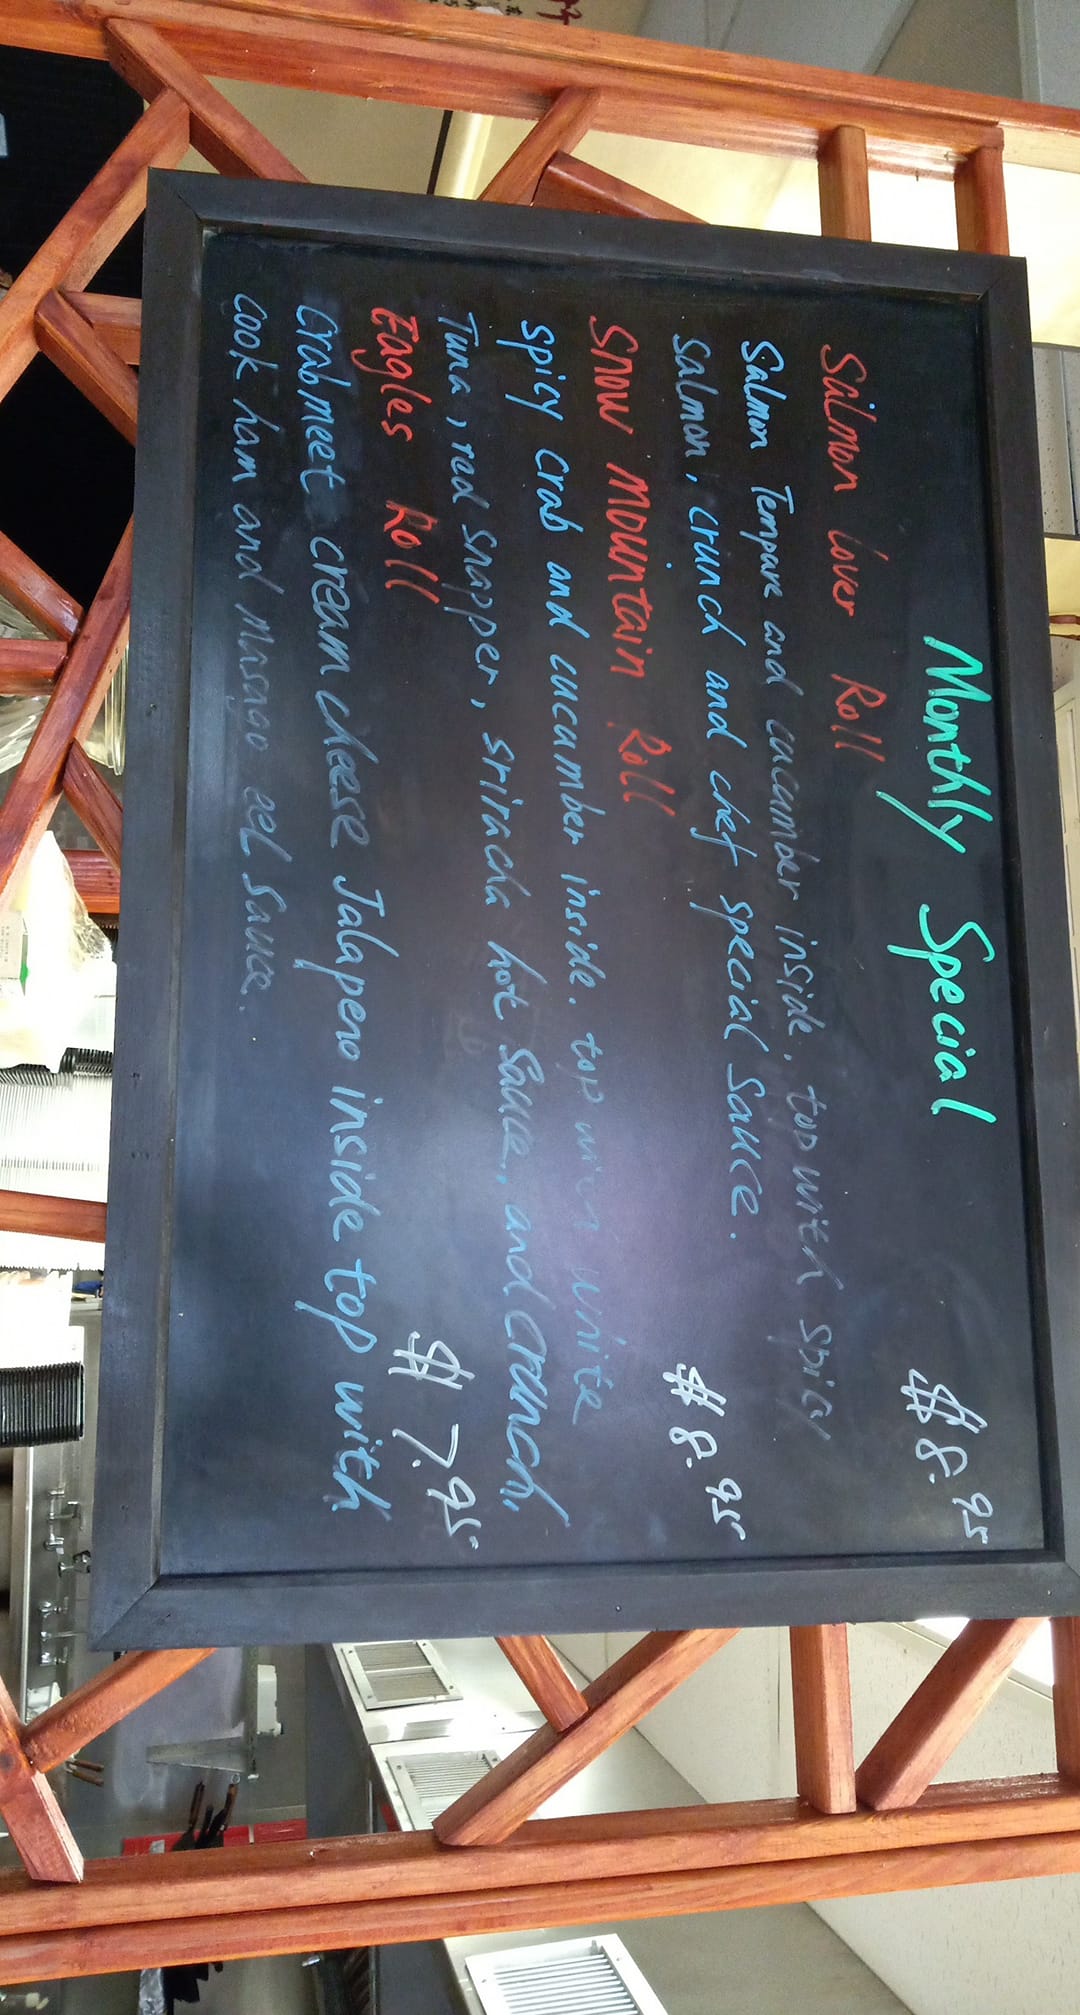 Monthly Special
$8.95
Salmon lover Roll
Salmon Tempare and cucumber inside, top with spicy
salmon, crunch and chef special Sauce.
$8.95
Snow Mountain Roll
Spicy crab and cucumber inside. top with write
Tuna, red snapper, sriracha hot Sauce, and crunch,
Eagles Roll
$7.95
Crabmeet cream cheese Jalapeno inside top with
cook ham and Masago eel Sauce.